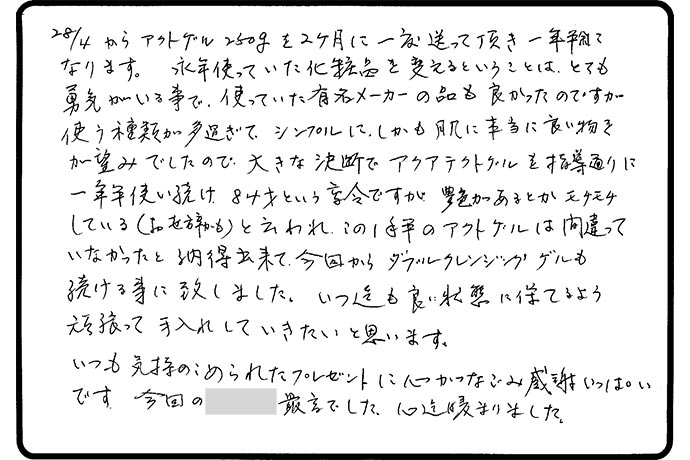 28/4 からアクトゲル250gを2ケ月に一度送って頂き一年半に
なります。 永年使っていた化粧品を変えるということは、とても
勇気がいる事で、使っていた有名メーカーの品も良かったのですが
使う種類が多過ぎて、シンプルに、しかも肌に本当に良い物を
が望みでしたので、大きな決断でアクアテクトゲルを指導通りに
一年半使い続け、84才という高令ですが、艶があるとかモチモチ
している(お世辞かも)と云われ、この1年半のアクトゲルは間違って
いなかったと納得出来て、今回からダブルクレンジングゲルも
続ける事に致しました。 いつ迄も良い状態に保てるよう
頑張って手入れしていきたいと思います。
いつも気持のこめられたプレゼントに心がつなごみ感謝いっぱい
です。 今回の 最高でした、心迄暖まりました。